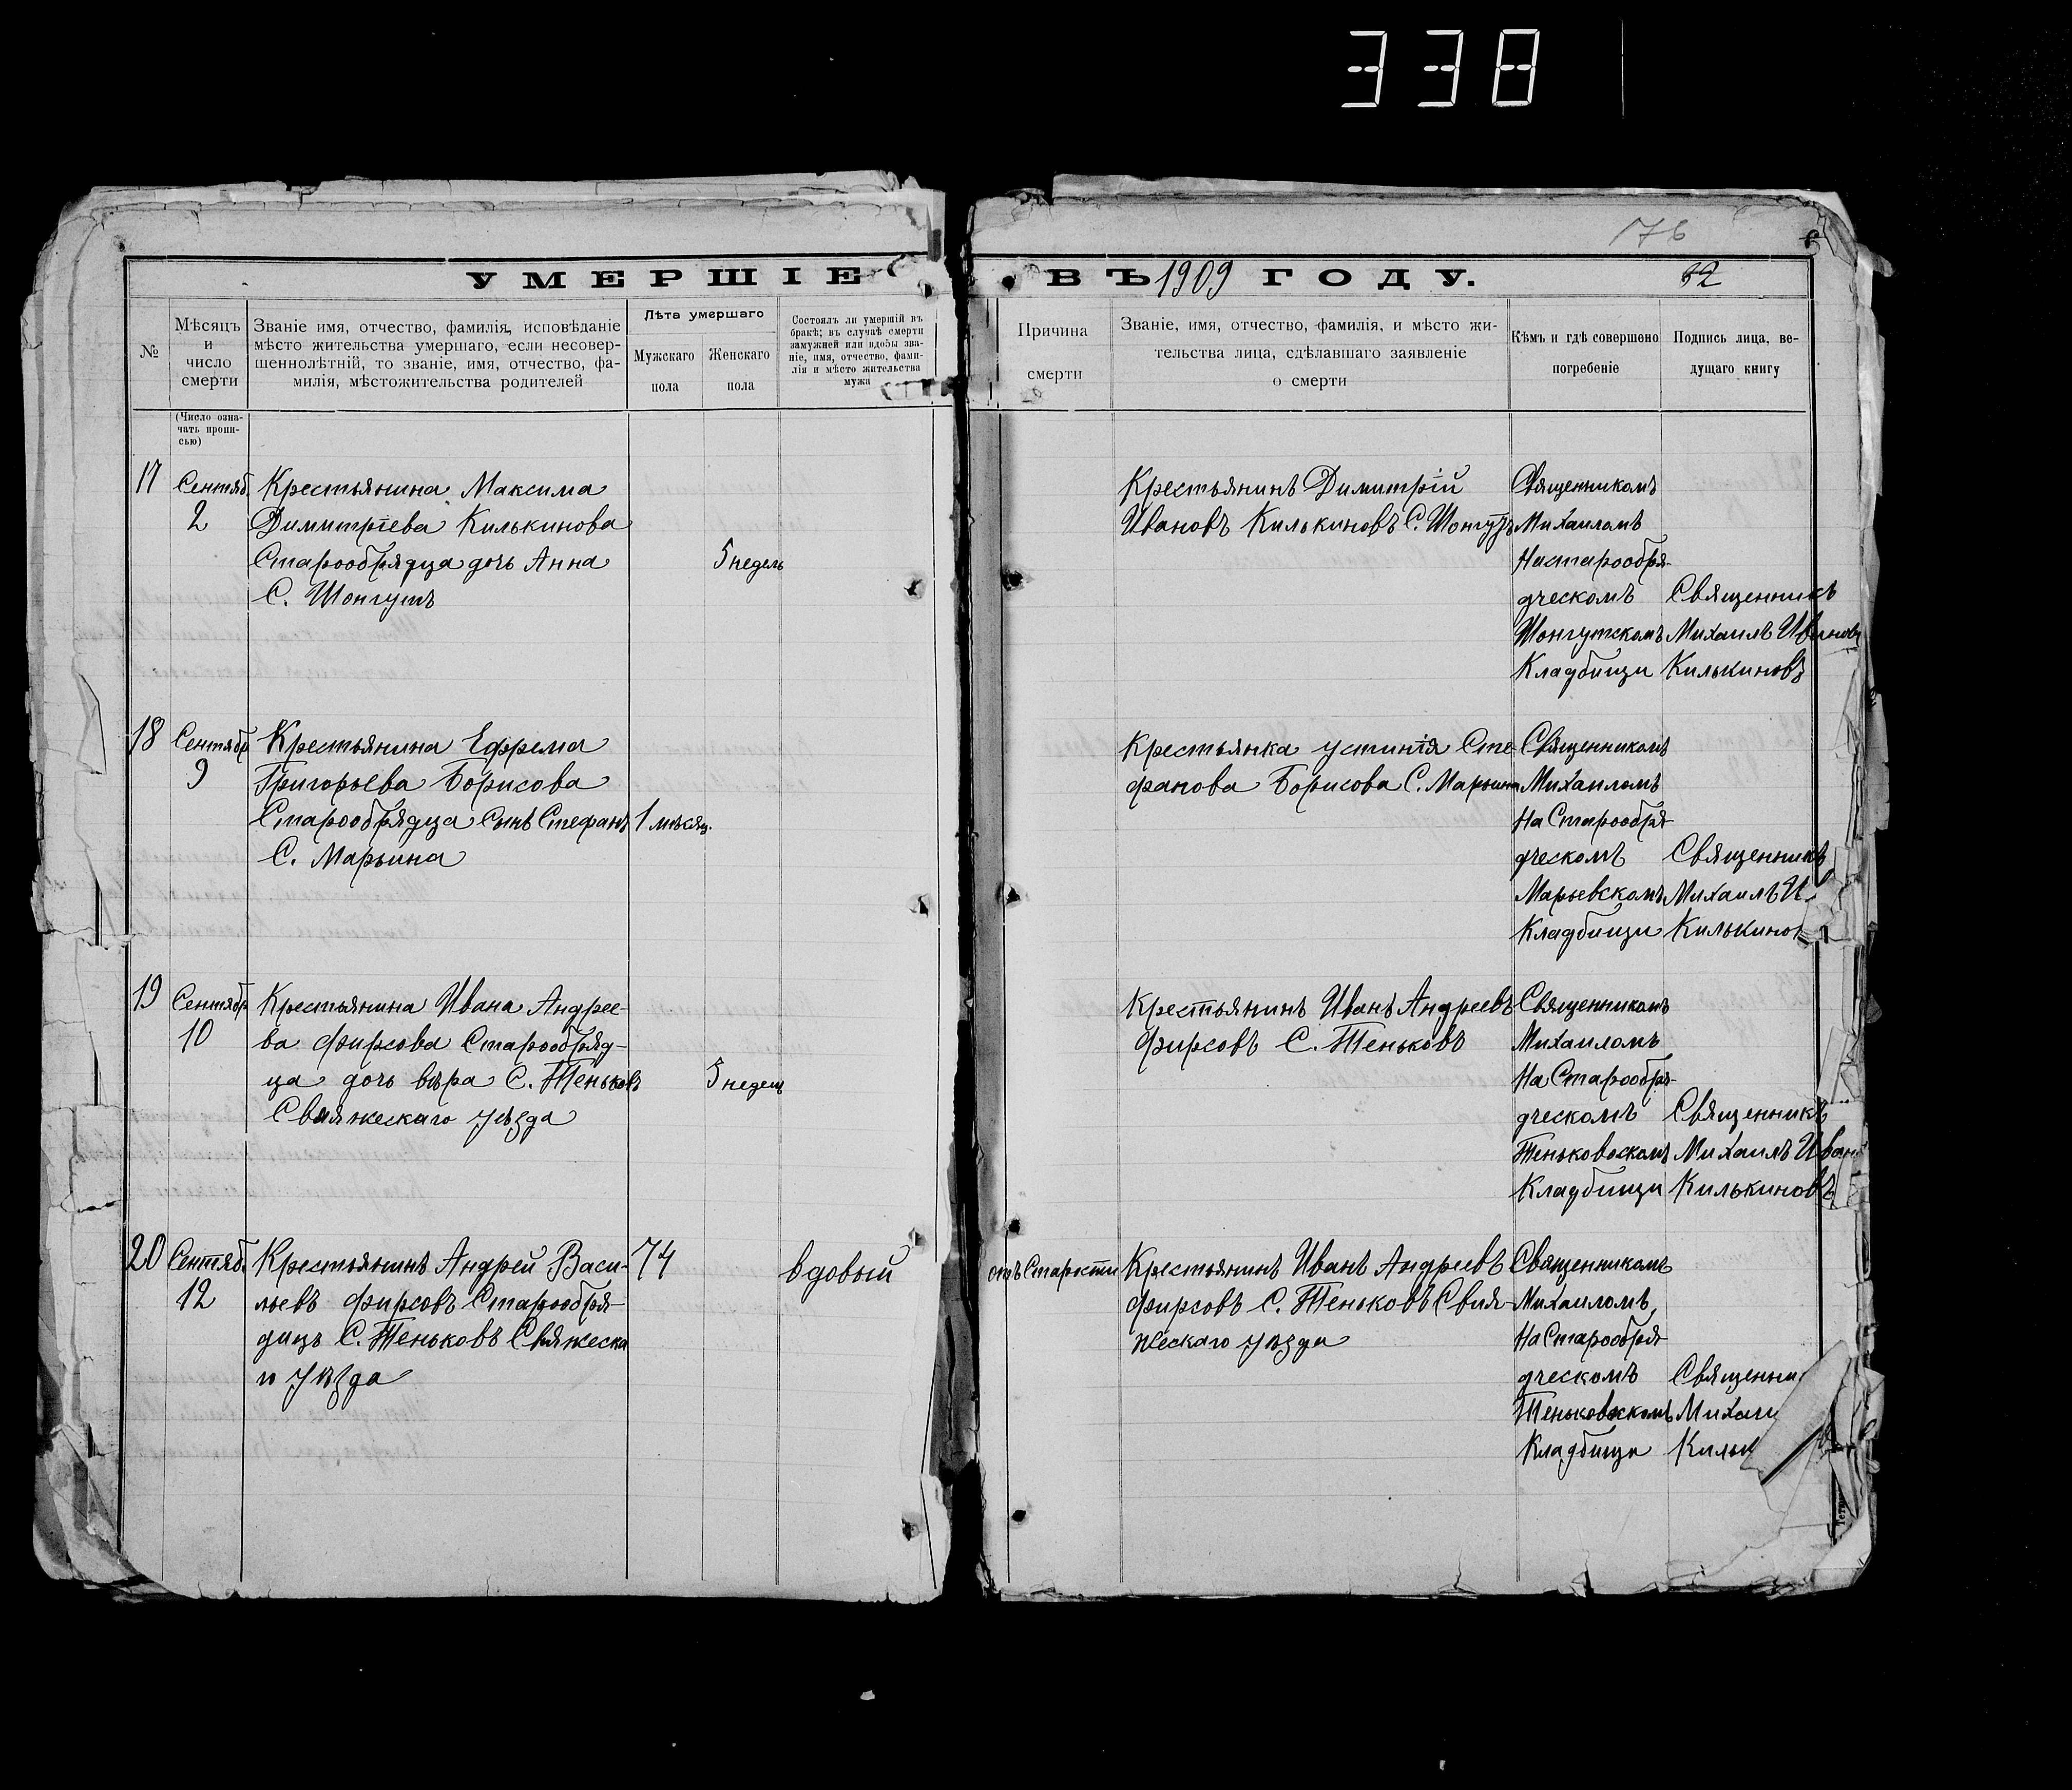 338
176
УМЕРШІЕ ВЪ 1909 ГОДУ.
32
№
Мѣсяцъ
и
число
смерти
(Число озна-
чать пропи-
сью)
Званіе имя, отчество, фамилія, исповѣданіе
мѣсто жительства умершаго, если несовер-
шеннолѣтній, то званіе, имя, отчество, фа-
милія, мѣстожительства родителей
Лѣта умершаго
Мужскаго
пола
Женскаго
пола
Состоялъ ли умершій въ
бракѣ; въ случаѣ смерти
замужней или вдовы зва-
ніе, имя, отчество, фами-
лія и мѣсто жительства
мужа
Причина
смерти
Званіе, имя, отчество, фамилія, и мѣсто жи-
тельства лица, сдѣлавшаго заявленіе
о смерти
Кѣмъ и гдѣ совершено
погребеніе
Подпись лица, ве-
дущаго книгу
17
Сентяб.
2
Крестьянина Максима
Димитріева Килькинова
Старообрядца дочь Анна
С. Шонгутъ
5 недель
Крестьянинъ Димитрій
Ивановъ Килькиновъ С. Шонгутъ
Священникомъ
Михаиломъ
На старообря-
дческомъ
Шонгутскомъ
Кладбищи
Священникъ
Михаилъ Ивановъ
Килькиновъ
18
Сентябр
9
Крестьянина Ефрема
Григорьева Борисова
Старообрядца Сынъ Стефанъ
С. Марьина
1 мѣсяц.
Крестьянка Устинія Сте-
фанова Борисова С. Марьина
Священникомъ
Михаиломъ
На Старообря-
дческомъ
Марьевскомъ
Кладбищи
Священникъ
Михаилъ И
Килькинов
19
Сентябр
10
Крестьянина Ивана Андрее-
ва Фирсова Старообряд-
ца дочь вѣра С. Теньковъ
Свіяжескаго уѣзда
5 недель
Крестьянинъ Иванъ Андреевъ
Фирсовъ С. Теньковъ
Священникомъ
Михаиломъ
На Старообря-
дческомъ
Теньковоскомъ
Кладбищи
Священникъ
Михаилъ Иван
Килькиновъ
20
Сентяб.
12
Крестьянинъ Андрей Васи-
льевъ Фирсовъ Старообря-
дицъ С. Теньковъ Свяжеска
го уѣзда
74
вдовый
отъ Старости
Крестьянинъ Иванъ Андреевъ
Фирсовъ С. Теньковъ Свия-
жескаго уѣзда
Священникомъ
Михаиломъ
На Старообря-
дческомъ
Теньковоскомъ
Кладбищи
Священни
Михаи
Кильк